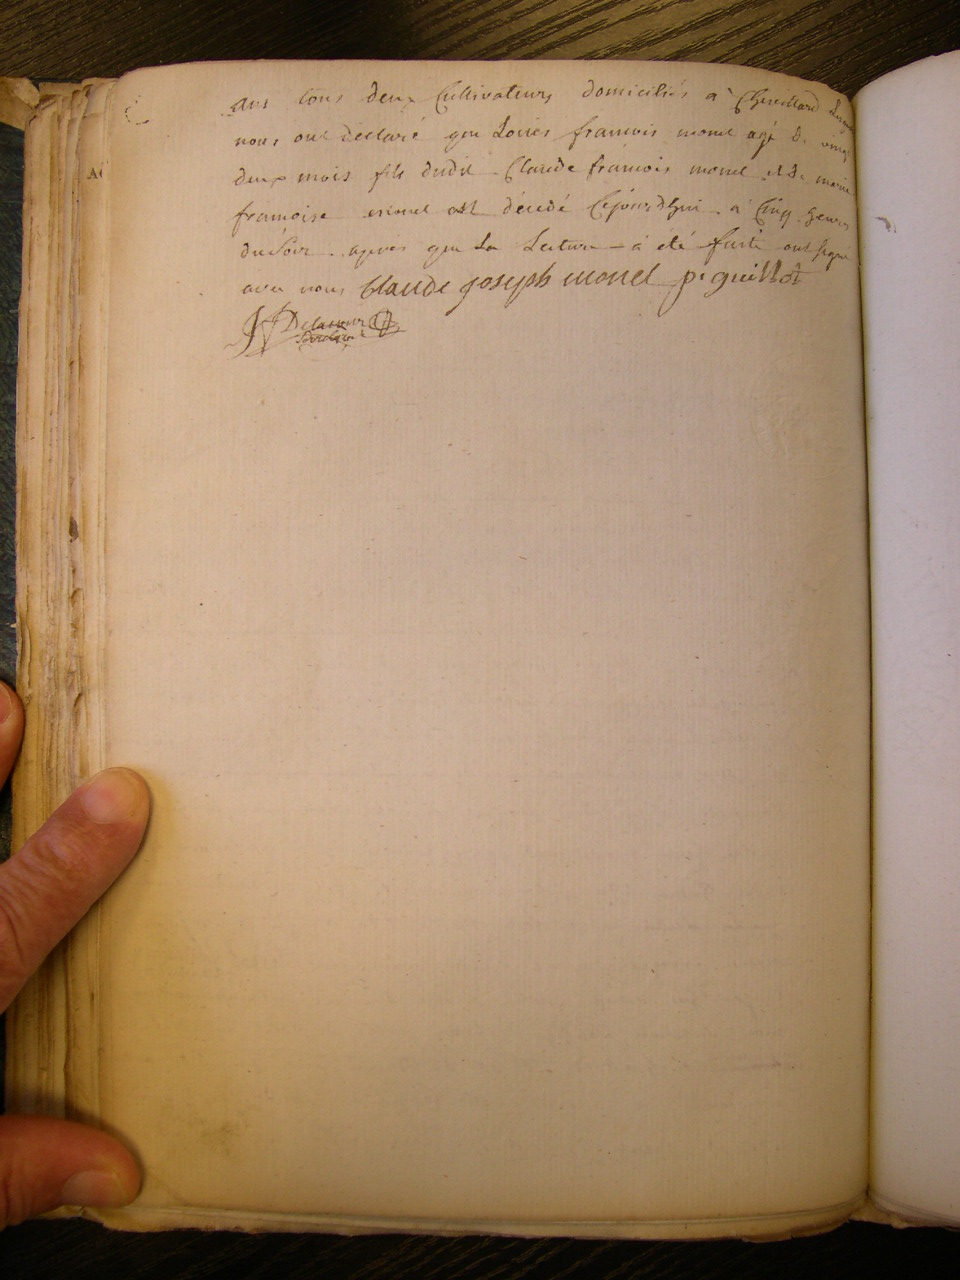 ans tous deux Cultivateurs domiciliés a Chevillard Lesq
nous ont declaré que Louis francois monel agé de vingt
deux mois fils dudit Claude francois monel et de marie
francoise monel est décédé Cejourdhui a Cinq heures
du soir après que La Lecture a été faitte ont signé
avec nous Claude joseph monel p. guillot